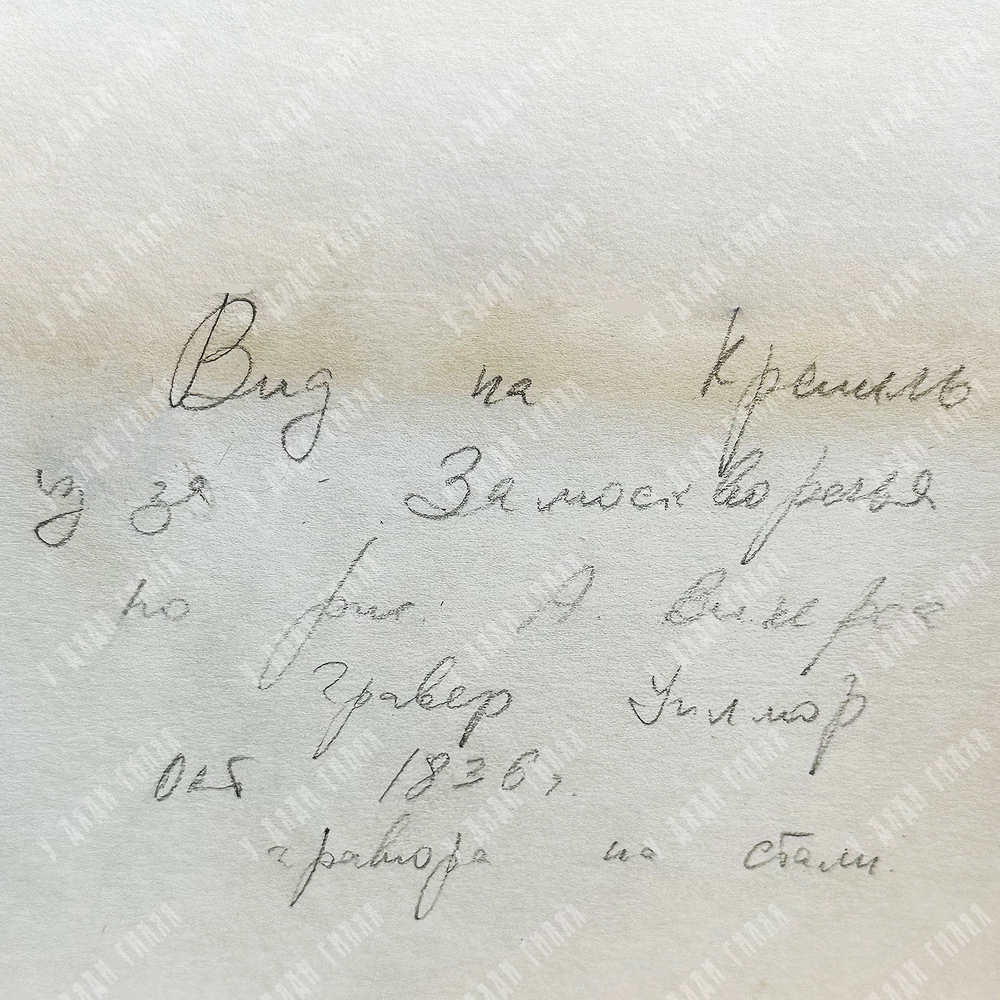 Вид на Кремль
из за Замоскворечья
по рис. А. Викерса
гравер Уилмор
Окт 1836 г.
гравюра на стали.
У ДЯДИ ГИЛЯЯ